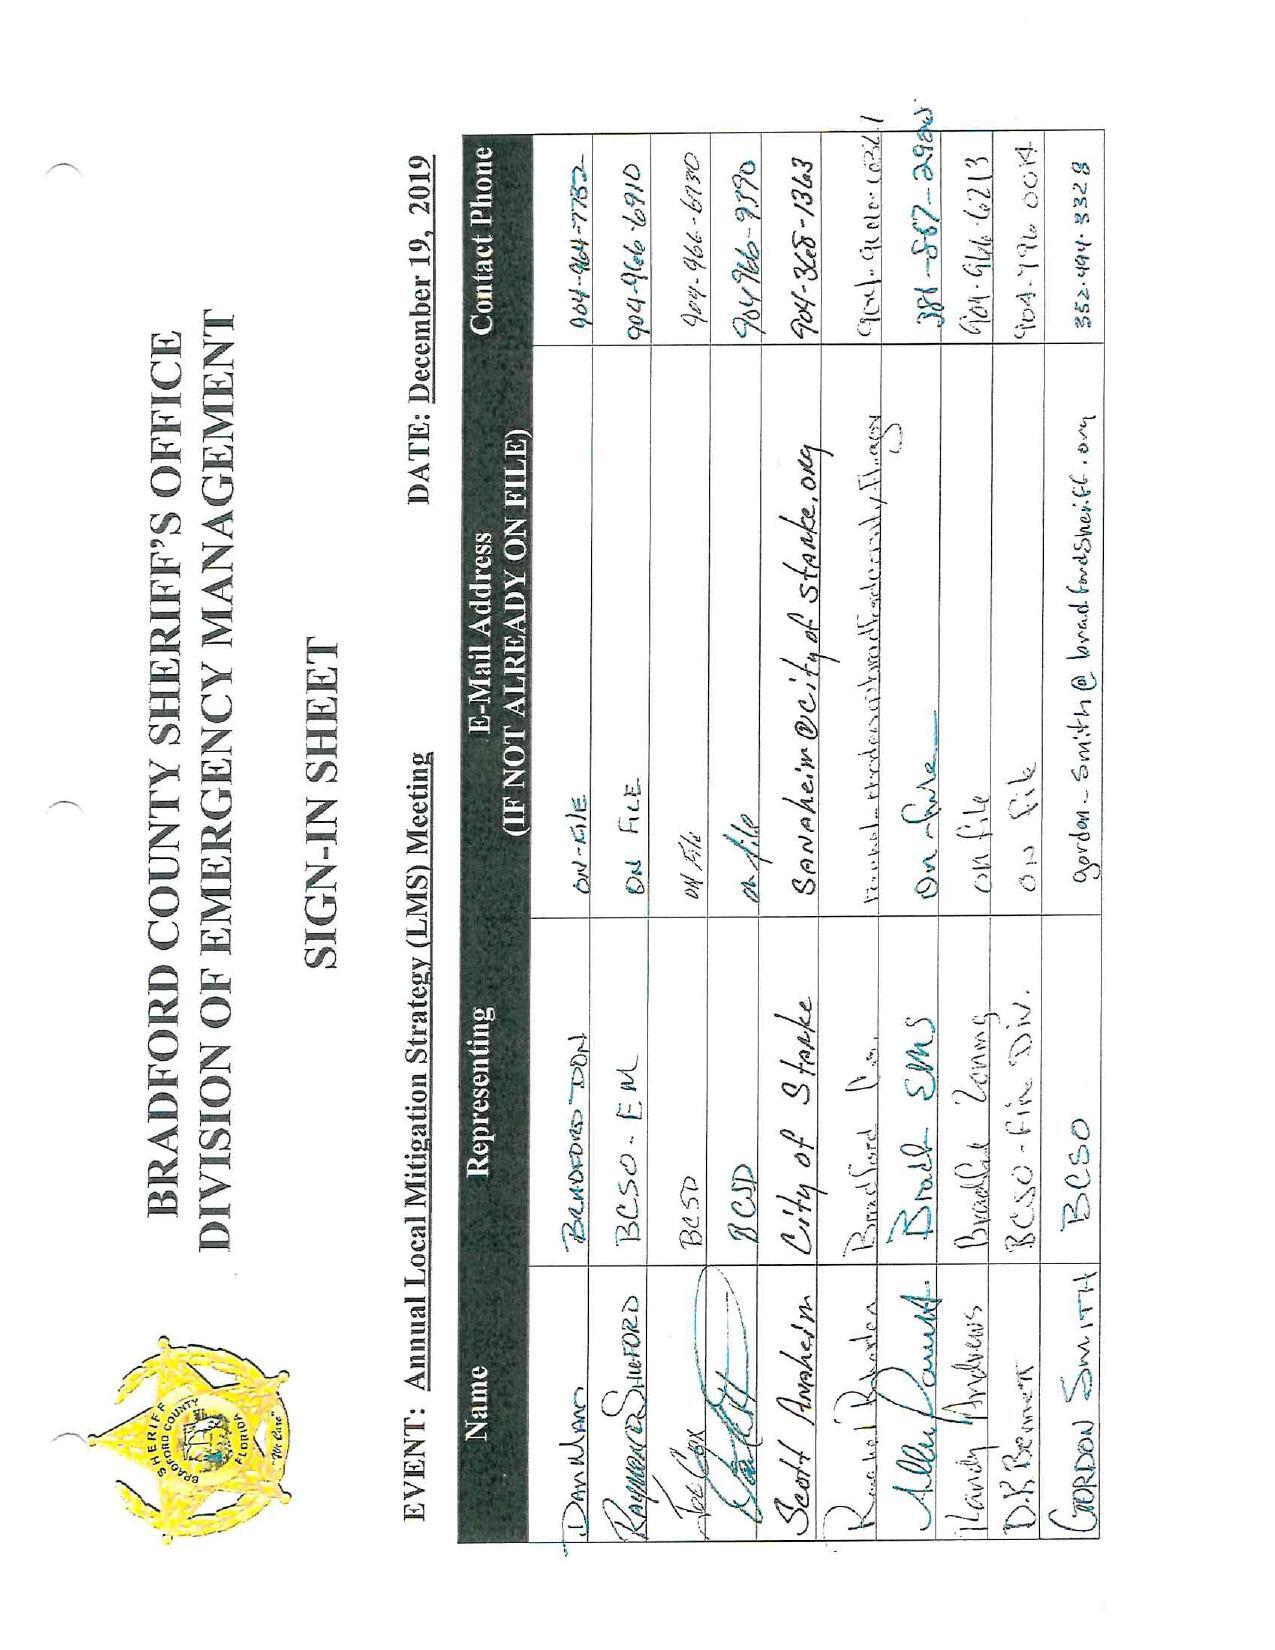 SHERIFF
BRADFORD COUNTY
FLORIDA
"We Care"
BRADFORD COUNTY SHERIFF'S OFFICE
DIVISION OF EMERGENCY MANAGEMENT
SIGN-IN SHEET
EVENT: Annual Local Mitigation Strategy (LMS) Meeting DATE: December 19, 2019
Name Representing E-Mail Address Contact Phone
(IF NOT ALREADY ON FILE)
Dan Mann BRADFORD DOH ON-FILE 904-964-7732
RAYMOND SHUFORD BCSO - EM ON FILE 904-966-6910
Joe Cox BCSO ON File 904-966-6730
BCSO on file 904 966-9390
Scott Anaheim City of Starke SANAheim@Cityofstarke.org 904-368-1363
Rachel Rhoden Bradford Co.
Allen Brad EMS On file
Randy Andrews Bradford Zoning on file 904-966-6213
D.R. Bennett BCSO - Fire Div. ON file 904-796 0014
GORDON SMITH BCSO gordon-smith@bradfordsheriff.org 352-494-3328